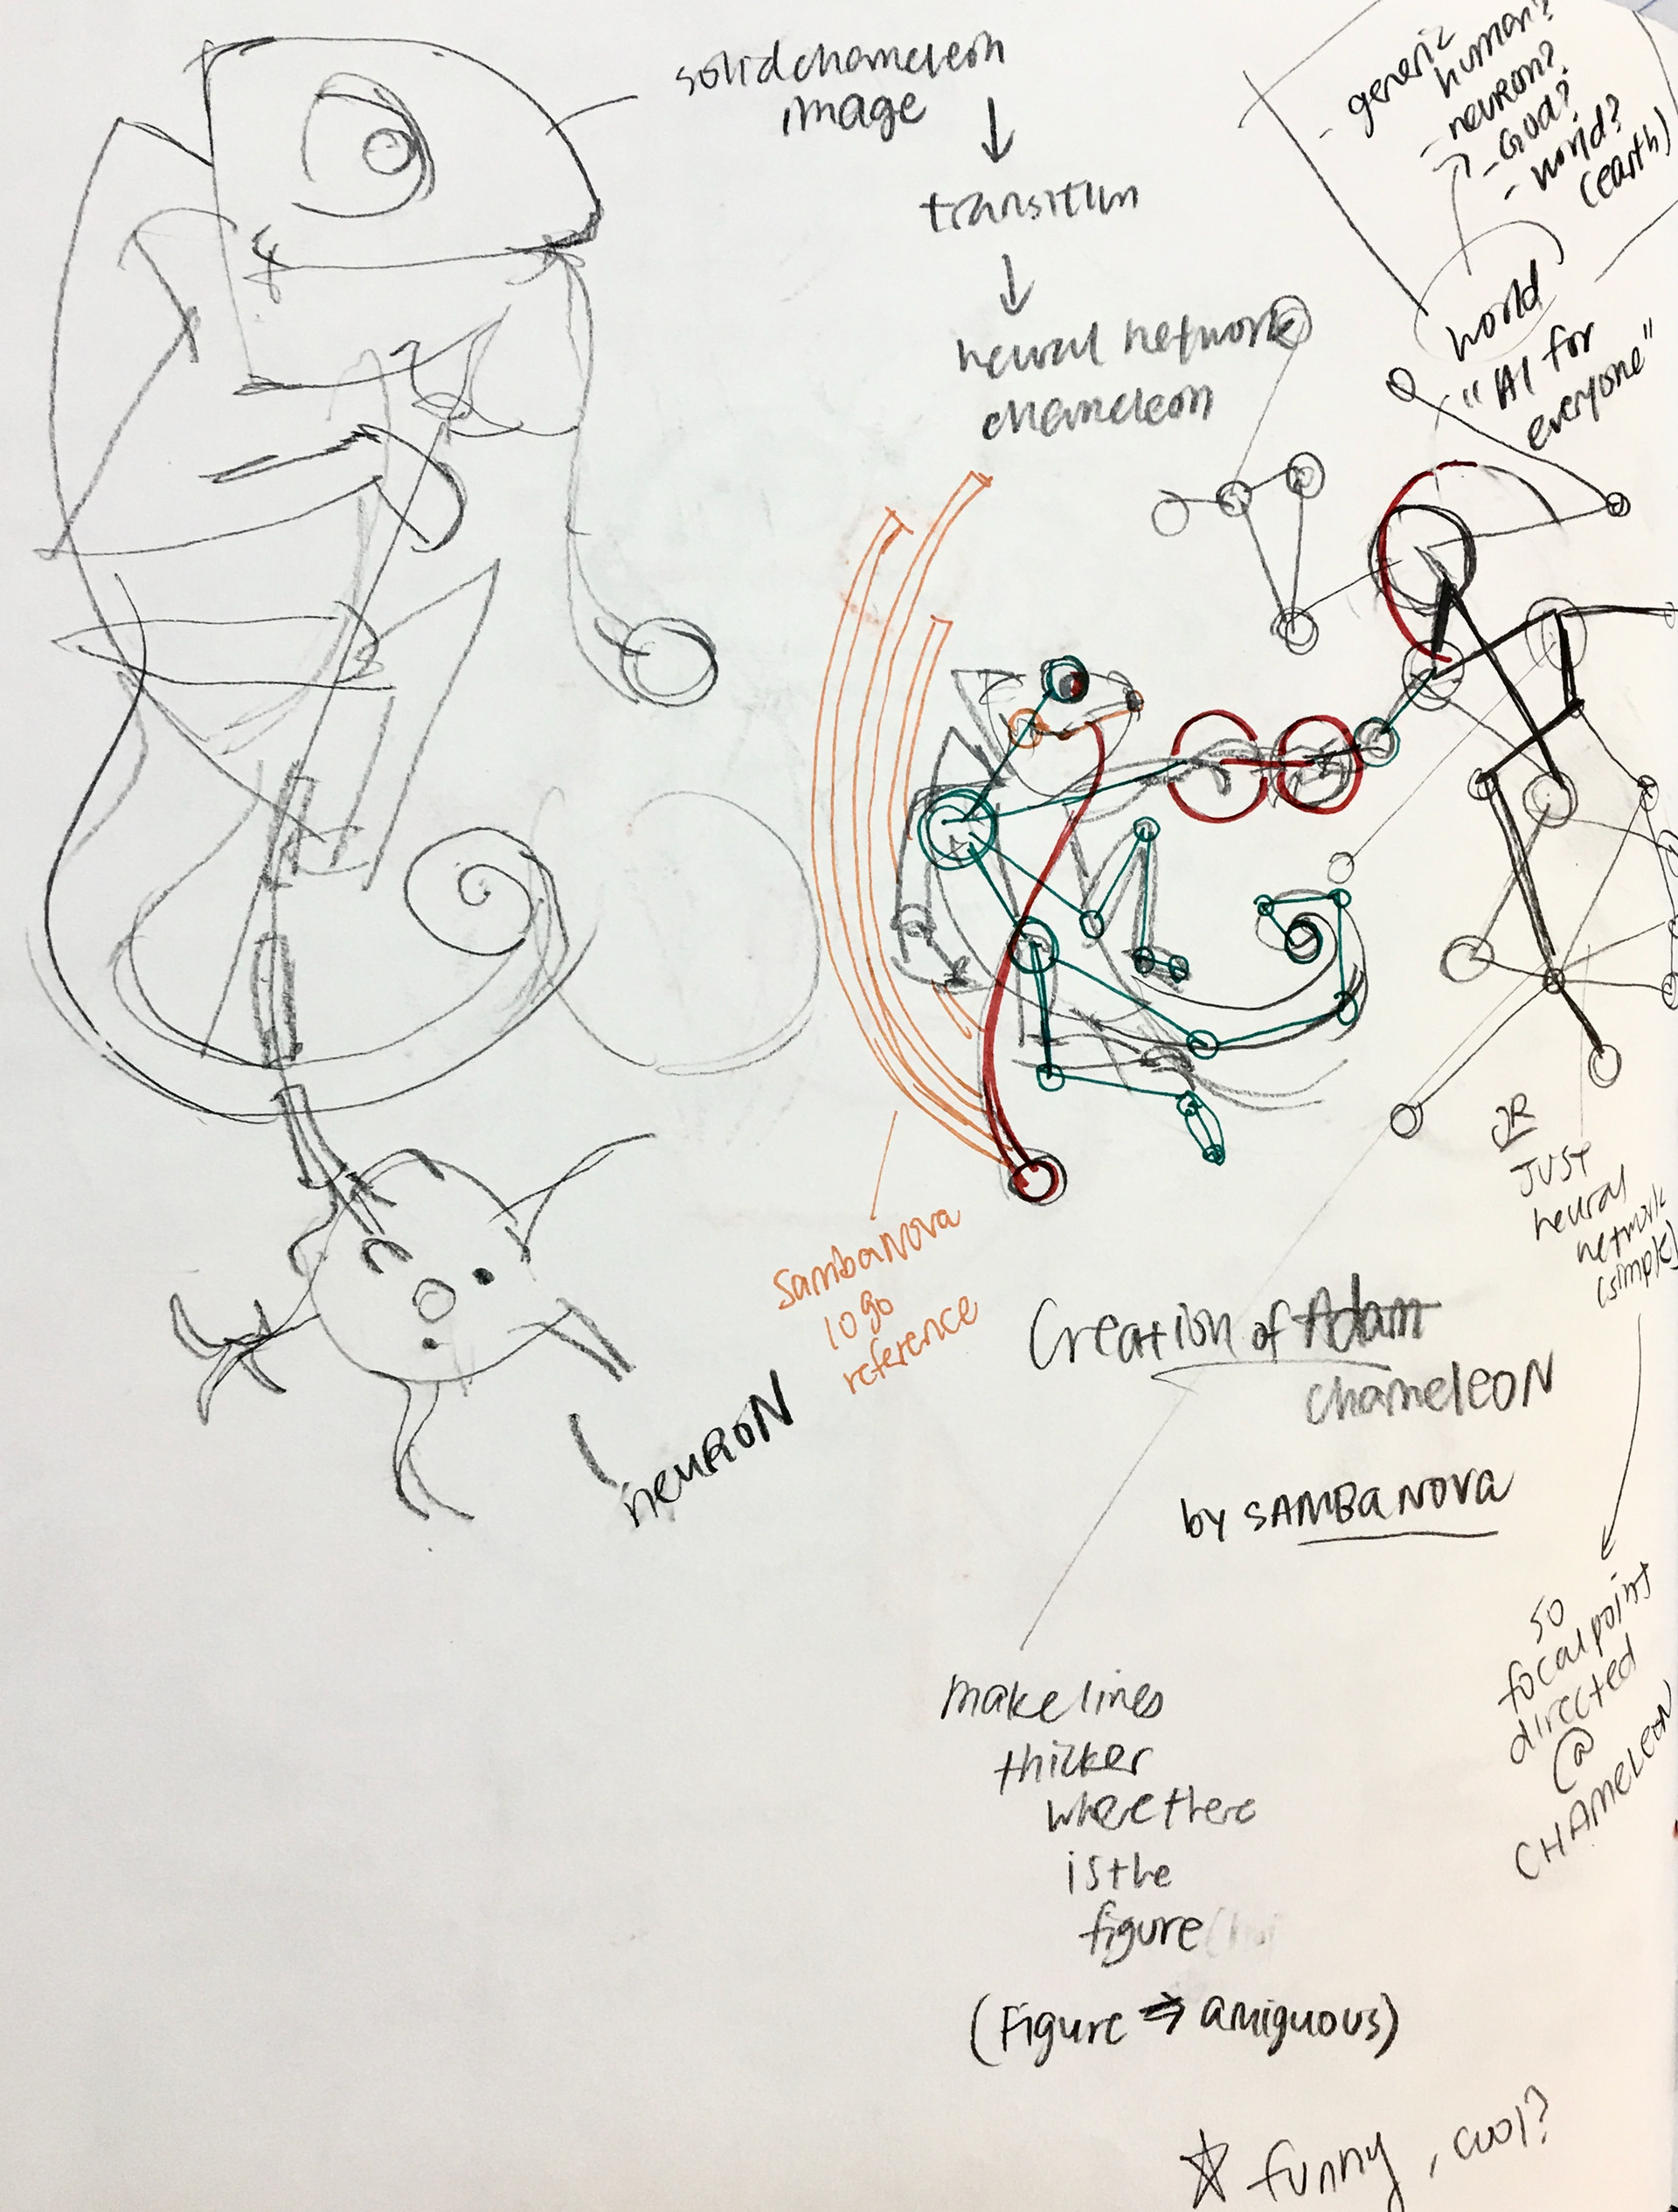 solid chameleon
image
↓
transition
↓
neural network
chameleon
- generic
human?
- neuron?
- God?
- world?
(earth)
world
"AI for
everyone"
SambaNova
logo
reference
neuRoN
OR
JUST
neural
network
(simple)
so
focal point
directed
@
CHAMELEON
Creation of Adam
chameleoN
by SAMBANOVA
make lines
thicker
where there
is the
figure
(Figure ⇒ amiguous)
☆ funny, cool?